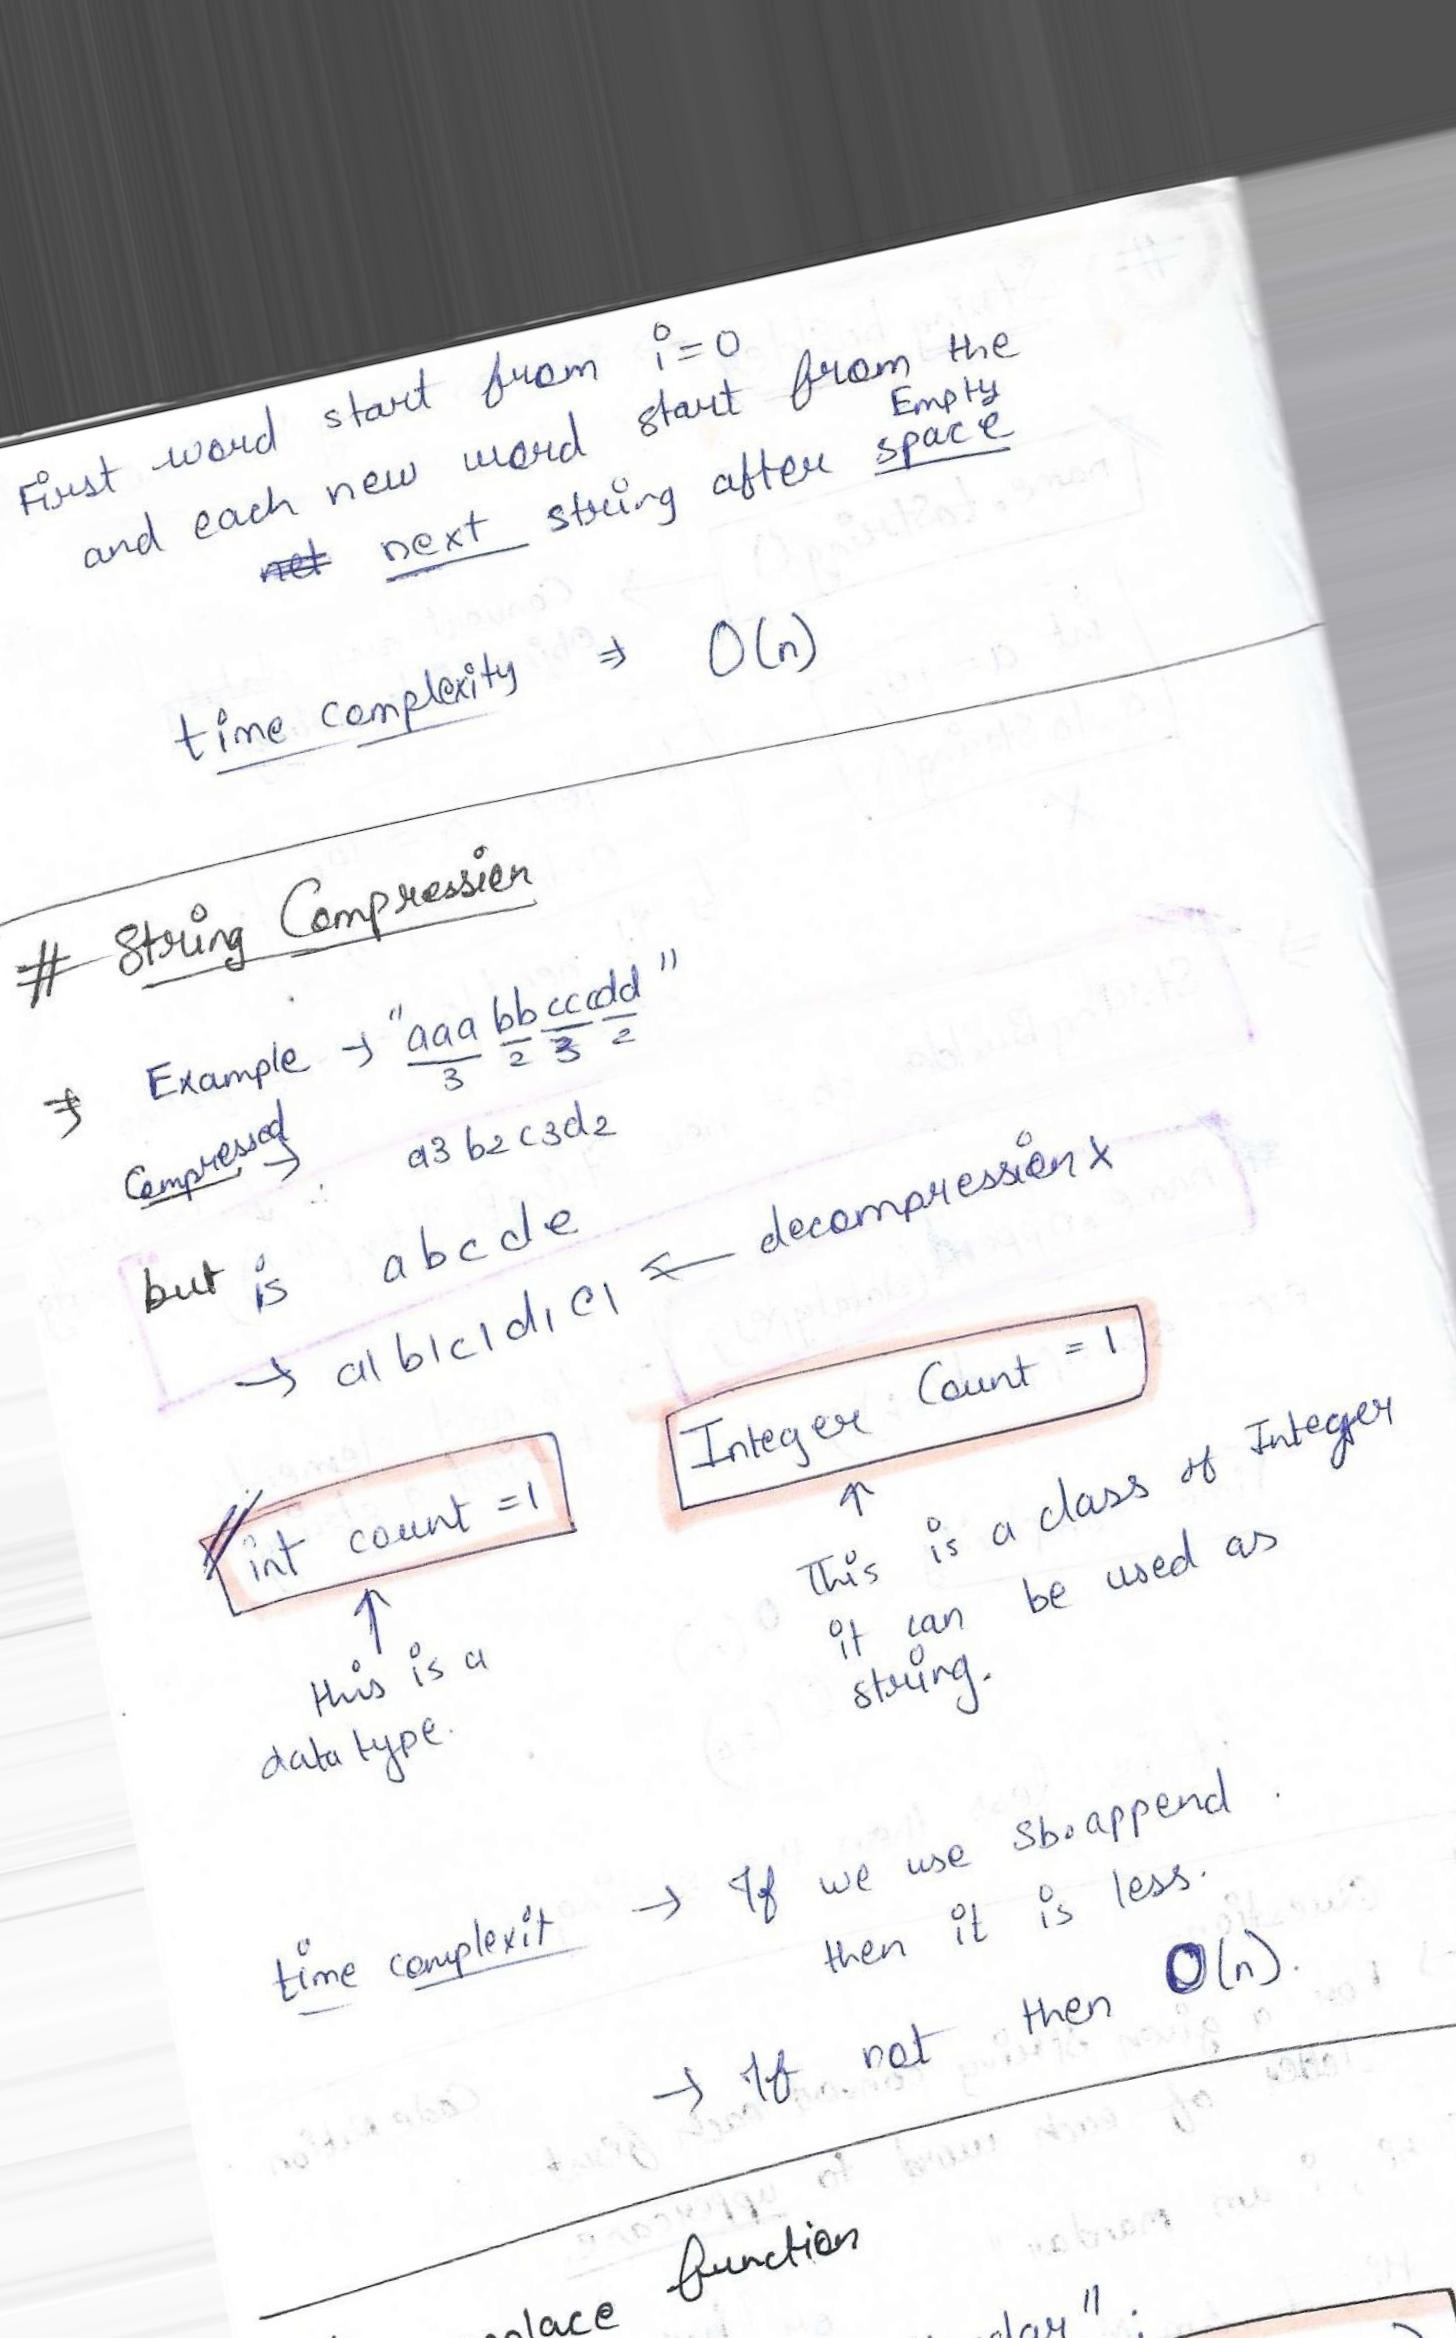 First word start from i=0
and each new word start from the
Empty
net next string after space
time complexity ⇒ O(n)
# String Compression
⇒ Example → "aaabbcccdd"
3 2 3 2
Compressed → a3b2c3d2
but is abcde
→ a1b1c1d1e1 ← decompression x
int count =1
Integer Count = 1
↑
this is a
data type.
↑
This is a class of Integer
it can be used as
string.
time complexit → If we use sb.append
then it is less.
→ If not then O(n).
function